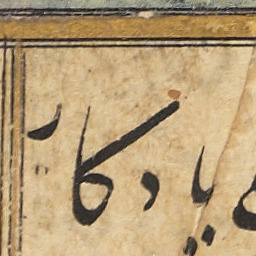 یادکار